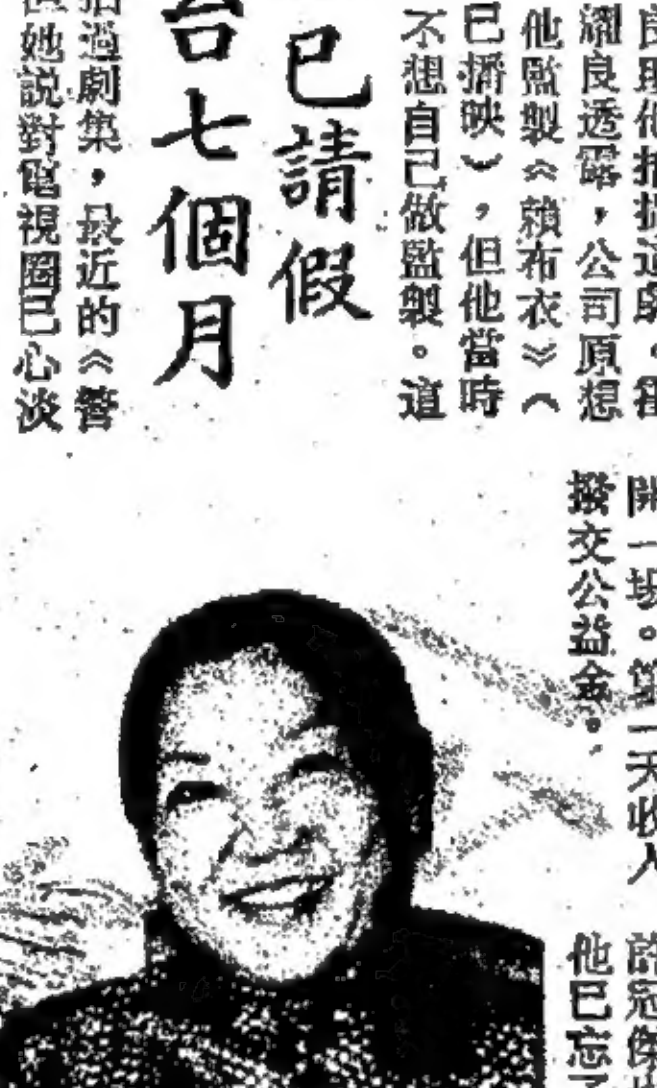 耀良透露，公司原想
他監製《賴布衣》（
已播映），但他當時
不想自己做監製。這
已請假
台七個月
拍過劇集，最近的《警
她説對電視圈已心淡
開一場。第一天收入
撥交公益金。
許冠傑
他已忘